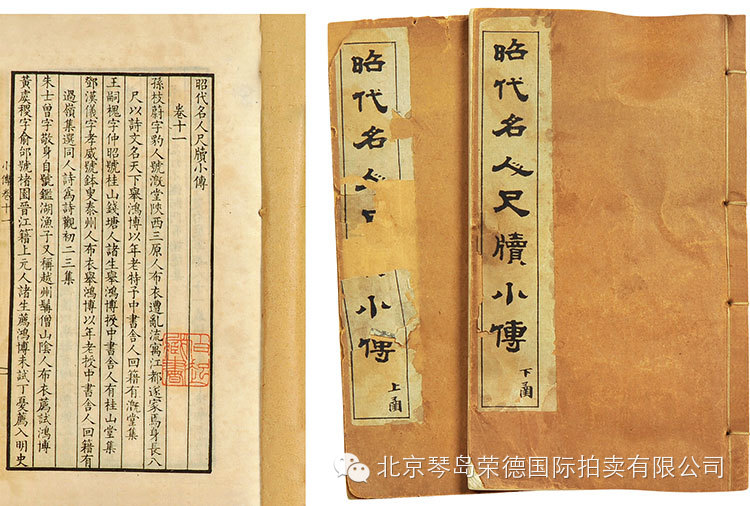 昭代名人尺牘小傳
卷十一
孫枝蔚字豹人號溉堂陝西三原人布衣遭亂流寓江都遂家焉身長八
尺以詩文名天下舉鴻博以年老特予中書舍人回籍有溉堂集
王嗣槐字仲昭號桂山錢塘人諸生舉鴻博授中書舍人有桂山堂集
鄧漢儀字孝威號鉢叟泰州人布衣舉鴻博以年老授中書舍人回籍有
過嶺集選同人詩爲詩觀初二三集
朱士曾字敬身自號鑑湖漁子又稱越州髯僧山陰人布衣薦試鴻博
黃虞稷字俞邰號楮園晉江籍上元人諸生薦鴻博未試丁憂薦入明史
小傳卷十一
昭代名人尺牘小傳
下函
昭代名人
小傳
上函
北京琴岛荣德国际拍卖有限公司